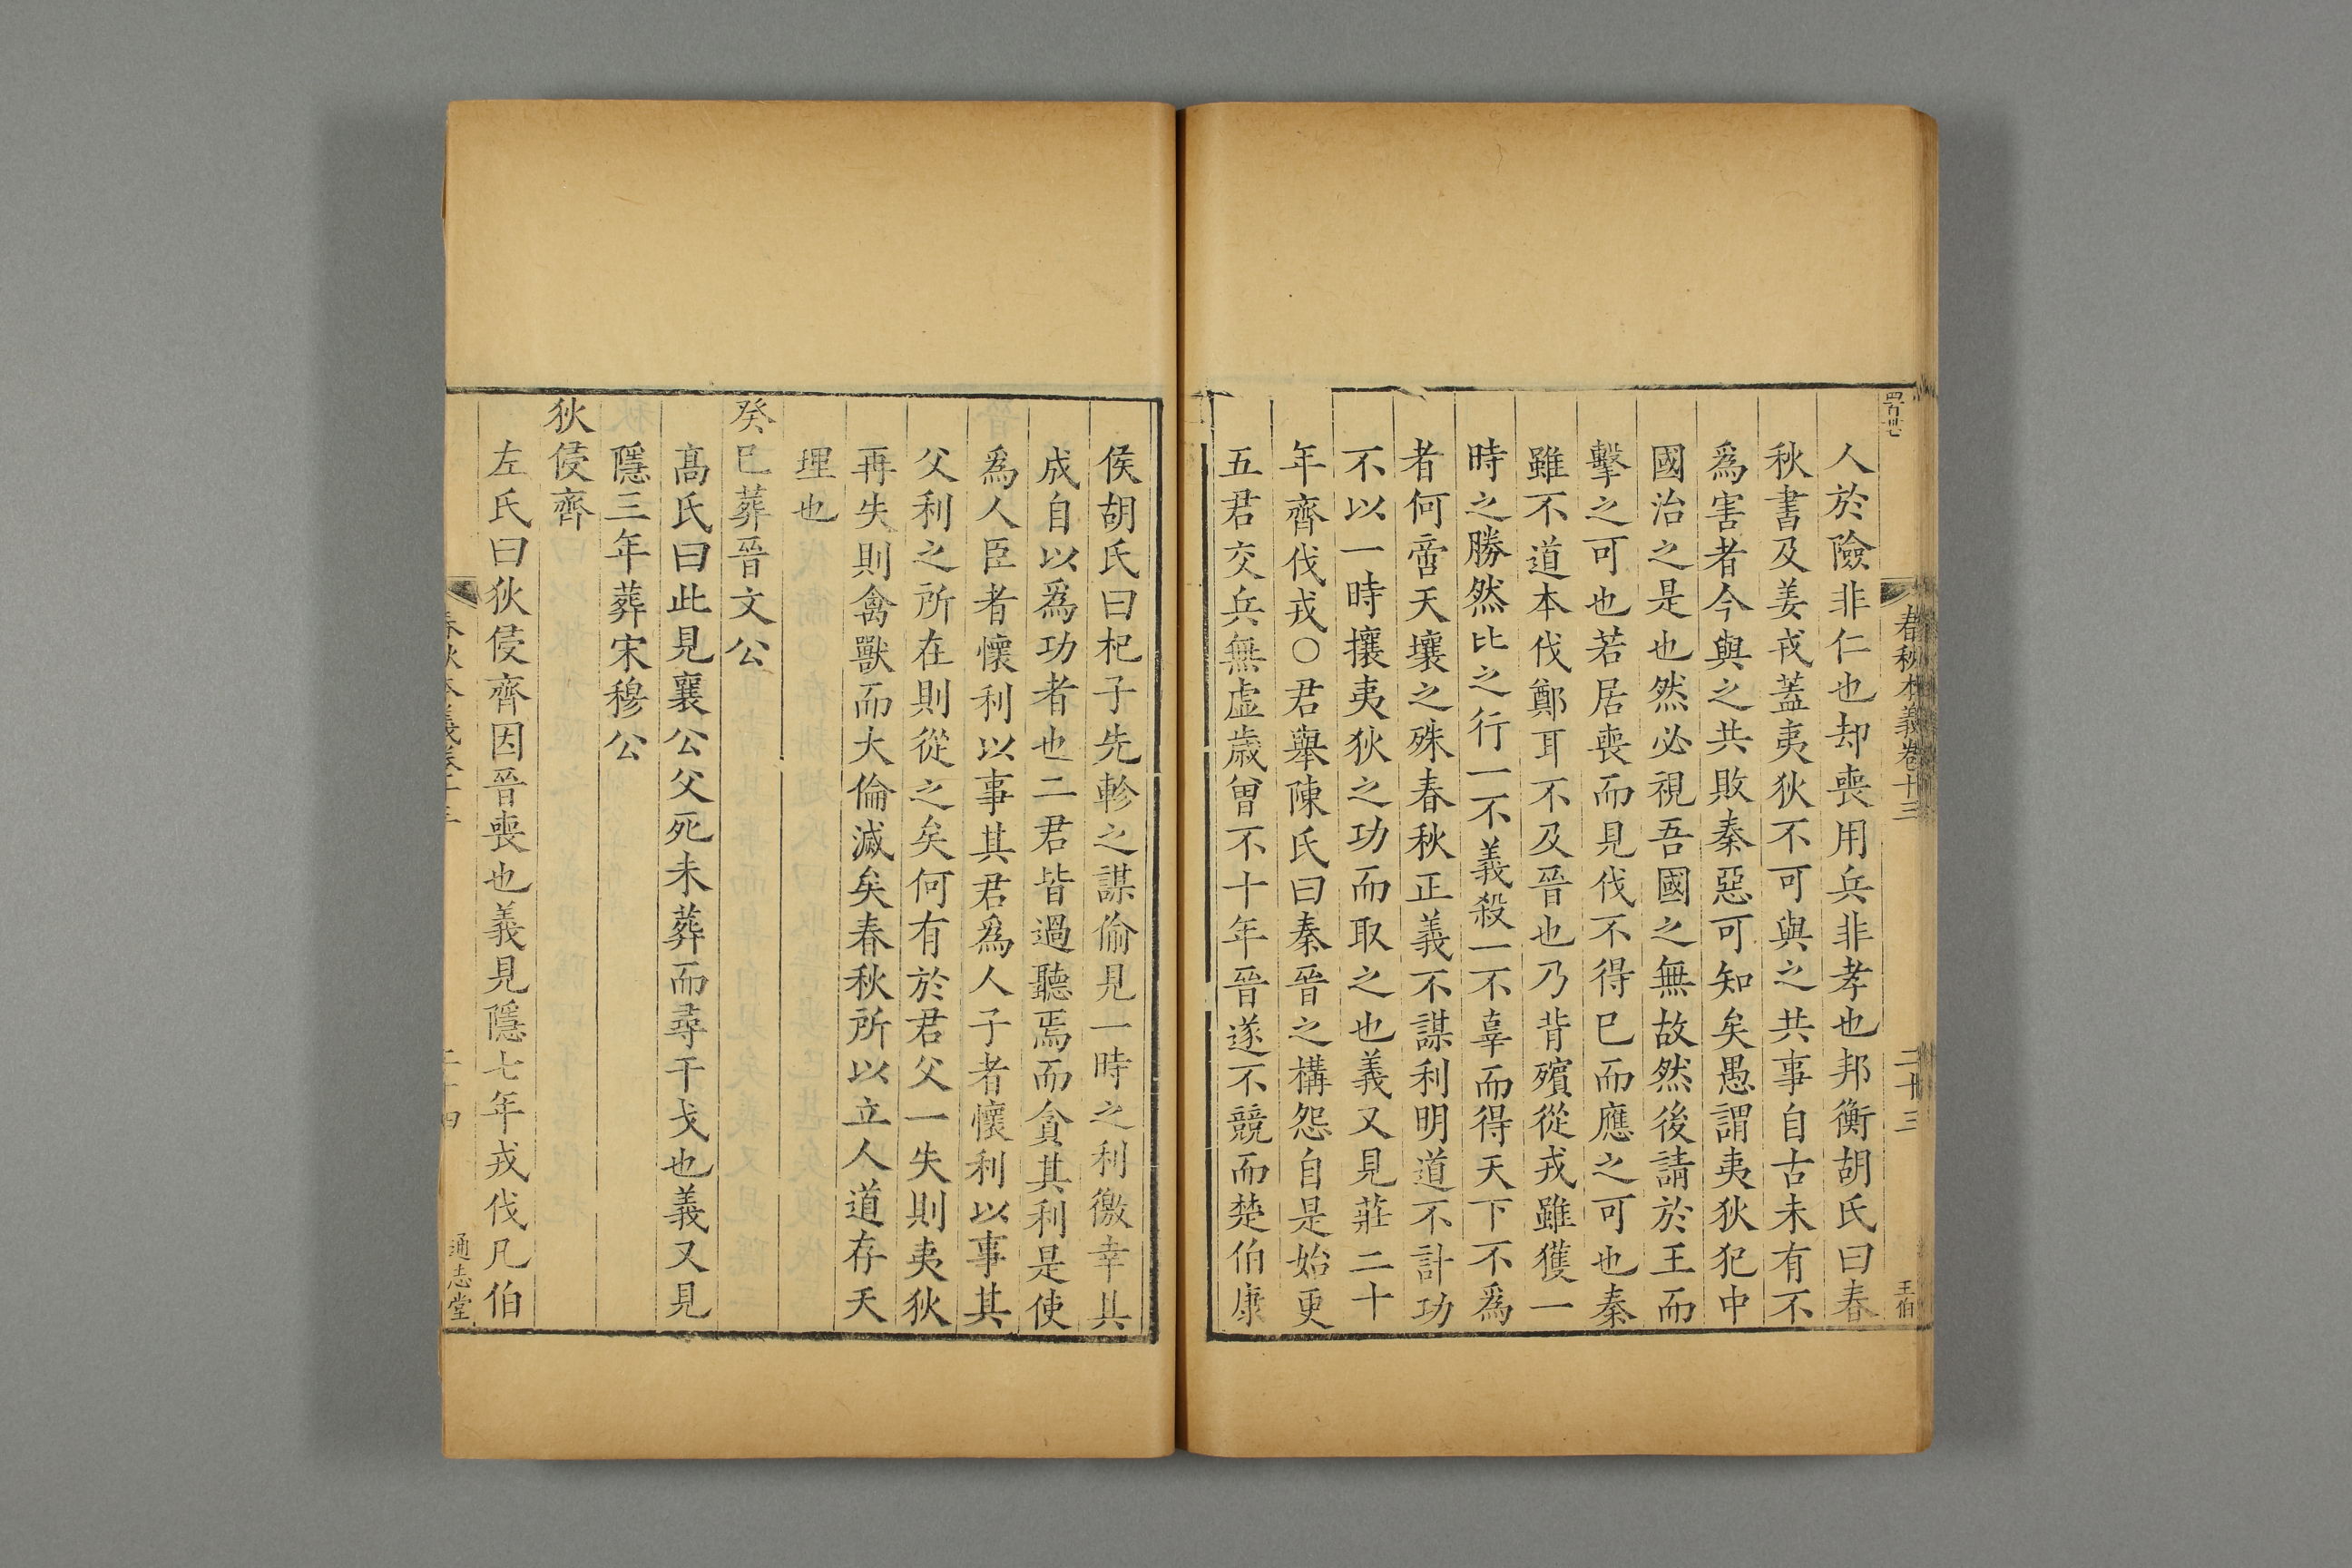 四百卅七
春秋本義卷十三
二十三
王伯
人於險非仁也却喪用兵非孝也邦衡胡氏曰春
秋書及姜戎蓋夷狄不可與之共事自古未有不
爲害者今與之共敗秦惡可知矣愚謂夷狄犯中
國治之是也然必視吾國之無故然後請於王而
擊之可也若居喪而見伐不得已而應之可也秦
雖不道本伐鄭耳不及晉也乃背殯從戎雖獲一
時之勝然比之行一不義殺一不辜而得天下不爲
者何啻天壤之殊春秋正義不謀利明道不計功
不以一時攘夷狄之功而取之也義又見莊二十
年齊伐戎○君舉陳氏曰秦晉之構怨自是始更
五君交兵無虛歲曾不十年晉遂不競而楚伯康
侯胡氏曰杞子先軫之謀偷見一時之利徼幸其
成自以爲功者也二君皆過聽焉而貪其利是使
爲人臣者懷利以事其君爲人子者懷利以事其
父利之所在則從之矣何有於君父一失則夷狄
再失則禽獸而大倫滅矣春秋所以立人道存天
理也
癸巳葬晉文公
高氏曰此見襄公父死未葬而尋干戈也義又見
隱三年葬宋穆公
狄侵齊
左氏曰狄侵齊因晉喪也義見隱七年戎伐凡伯
春秋本義卷十三
二十四
通志堂